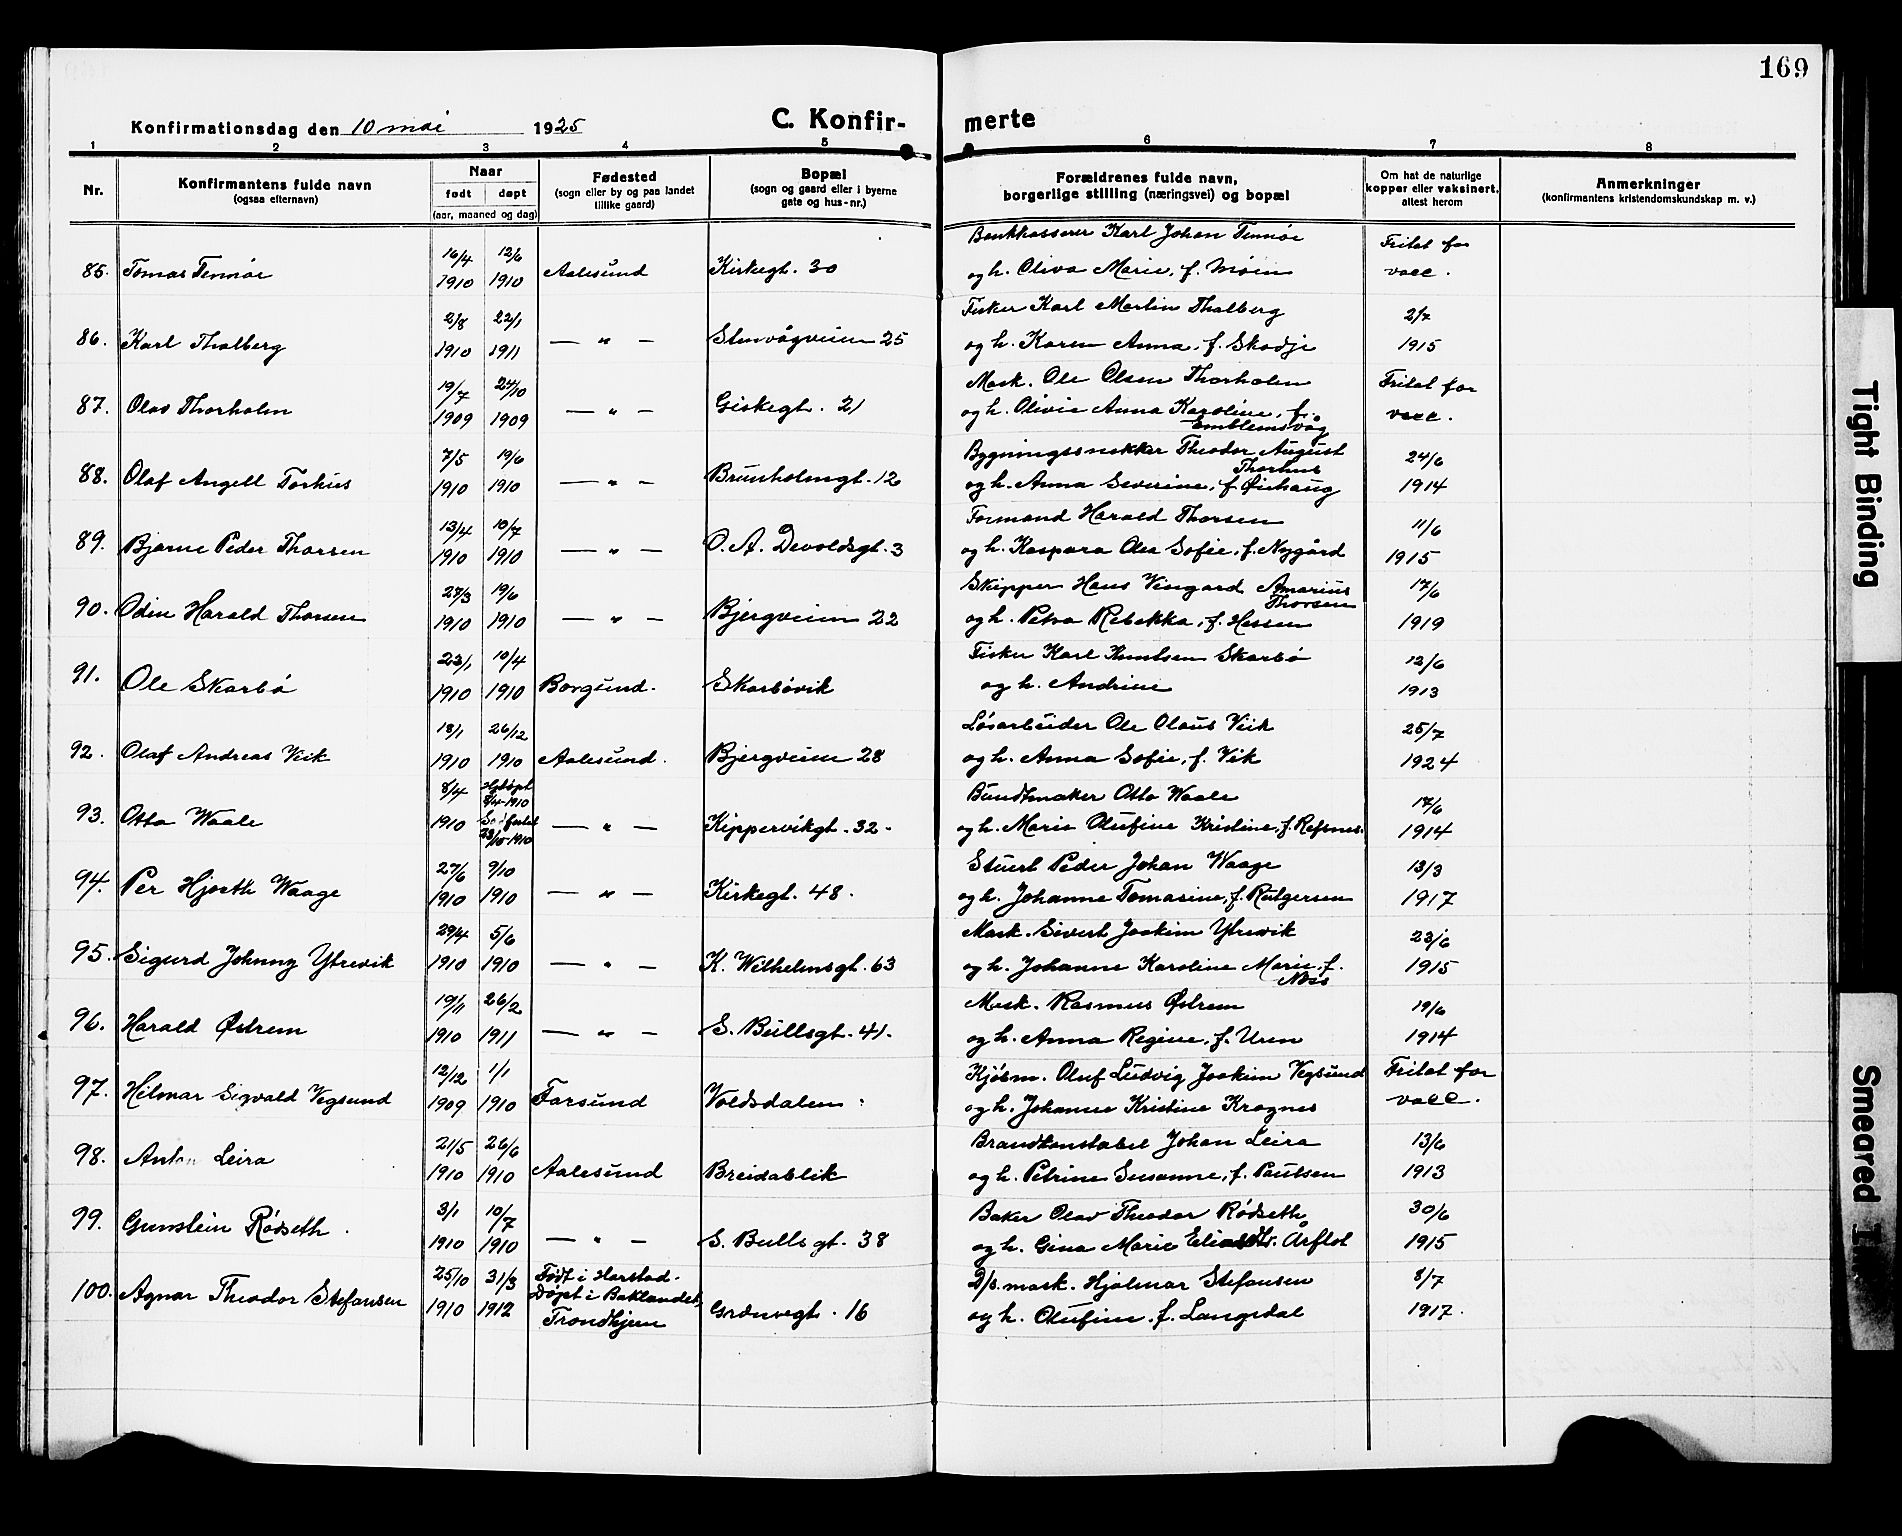 169
Konfirmationsdag den 10 mai 1925
C. Konfir- merte
1 2 3 4 5 6 7 8
Nr.
Konfirmantens fulde navn
(ogsaa efternavn)
Naar
født døpt
(aar, maaned og dag)
Fødested
(sogn eller by og paa landet
tillike gaard)
Bopæl
(sogn og gaard eller i byerne
gate og hus-nr.)
Forældrenes fulde navn,
borgerlige stilling (næringsvei) og bopæl
Om hat de naturlige
kopper eller vaksinert,
attest herom
Anmerkninger
(konfirmantens kristendomskundskap m. v.)
16/4 12/6 Bankkasserer Karl Johan Tennøe Fritat for
85. Tomas Tennøe 1910 1910 Aalesund Kirkegt. 30 og h. Oliva Marie, f. Moen vacc.
2/8 22/1 Fisker Karl Martin Thalberg 2/7
86. Karl Thalberg 1910 1911 — " — Stenvågveien 25 og h. Karen Anna, f. Skodje 1915
19/7 24/10 Mask. Ole Olsen Thorholm Fritat for
87. Olav Thorholm 1909 1909 — " — Giskegt. 21 og h. Olivie Anna Karoline, f. vacc.
Emblemsvåg
7/5 19/6 Bygningssnekker Theodor August 24/6
Thorhus
88. Olaf Angell Torhus 1910 1910 — " — Brunholmgt. 12 og h. Anna Severine, f. Øiehaug 1914
13/4 10/7 Formand Harald Thorsen 11/6
89. Bjarne Peder Thorsen 1910 1910 — " — O. A. Devoldsgt. 3 og h. Kaspara Olea Sofie, f. Nygård 1915
28/3 19/6 Skipper Hans Vingard Amarius 17/6
Thorsen
90. Odin Harald Thorsen 1910 1910 — " — Bjergveien 22 og h. Petra Rebekka, f. Hessen 1919
23/1 10/4 Fisker Karl Knutsen Skarbö 12/6
91. Ole Skarbö 1910 1910 Borgund. Skarbövik og h. Andrine 1913
18/1 26/12 Lösarbeider Ole Olaus Veik 25/7
92. Olaf Andreas Veik 1910 1910 Aalesund. Bjergveien 28 og h. Anna Sofie, f. Vik 1924
8/4 Hjdöpt Bundtmaker Otto Waale 17/6
8/4-1910
93. Otto Waale 1910 — " — Kippervikgt. 32. og h. Marie Olufine Kristine, f. Refsnes. 1914
1910
27/6 9/10 Stuert Peder Johan Waage 13/3
94. Per Hjorth Waage 1910 1910 — " — Kirkegt. 48. og h. Johanne Tomasine, f. Rutgersen 1917
29/4 5/6 Mask. Sivert Joakim Ytrevik 23/6
95. Sigurd Johnny Ytrevik 1910 1910 — " — K. Wilhelmsgt. 63 og h. Johanne Karoline Marie, f. 1915
19/11 26/2 Mask. Rasmus Østrem 19/6
96. Harald Østrem 1910 1911 — " — S. Bullsgt. 41. og h. Anna Regine, f. Uren 1914
12/12 1/1 Kjöbm. Oluf Ludvig Joakim Vegsund Fritat for
97. Hilmar Sigvald Vegsund 1909 1910 Farsund Voldsdalen og h. Johanne Kristine Kragnes vacc.
21/5 26/6 Brandkonstabel Johan Leira 13/6
98. Anton Leira 1910 1910 Aalesund Breidablik og h. Petrine Susanne, f. Paulsen 1913
3/1 10/7 Baker Olav Theodor Rödseth 30/6
99. Gunstein Rödseth. 1910 1910 — " — S. Bulls gt. 38 og h. Gina Marie Arflot 1915
25/10 31/3 Födt i Harstad. D/s. mask. Hjalmar Stefansen 8/7
Döpt i Baklandet,
100. Agnar Theodor Stefansen 1910 1912 Trondhjem Grönvegt. 16 og h. Olufine, f. Langsdal 1917.
Tight Binding
Smeared